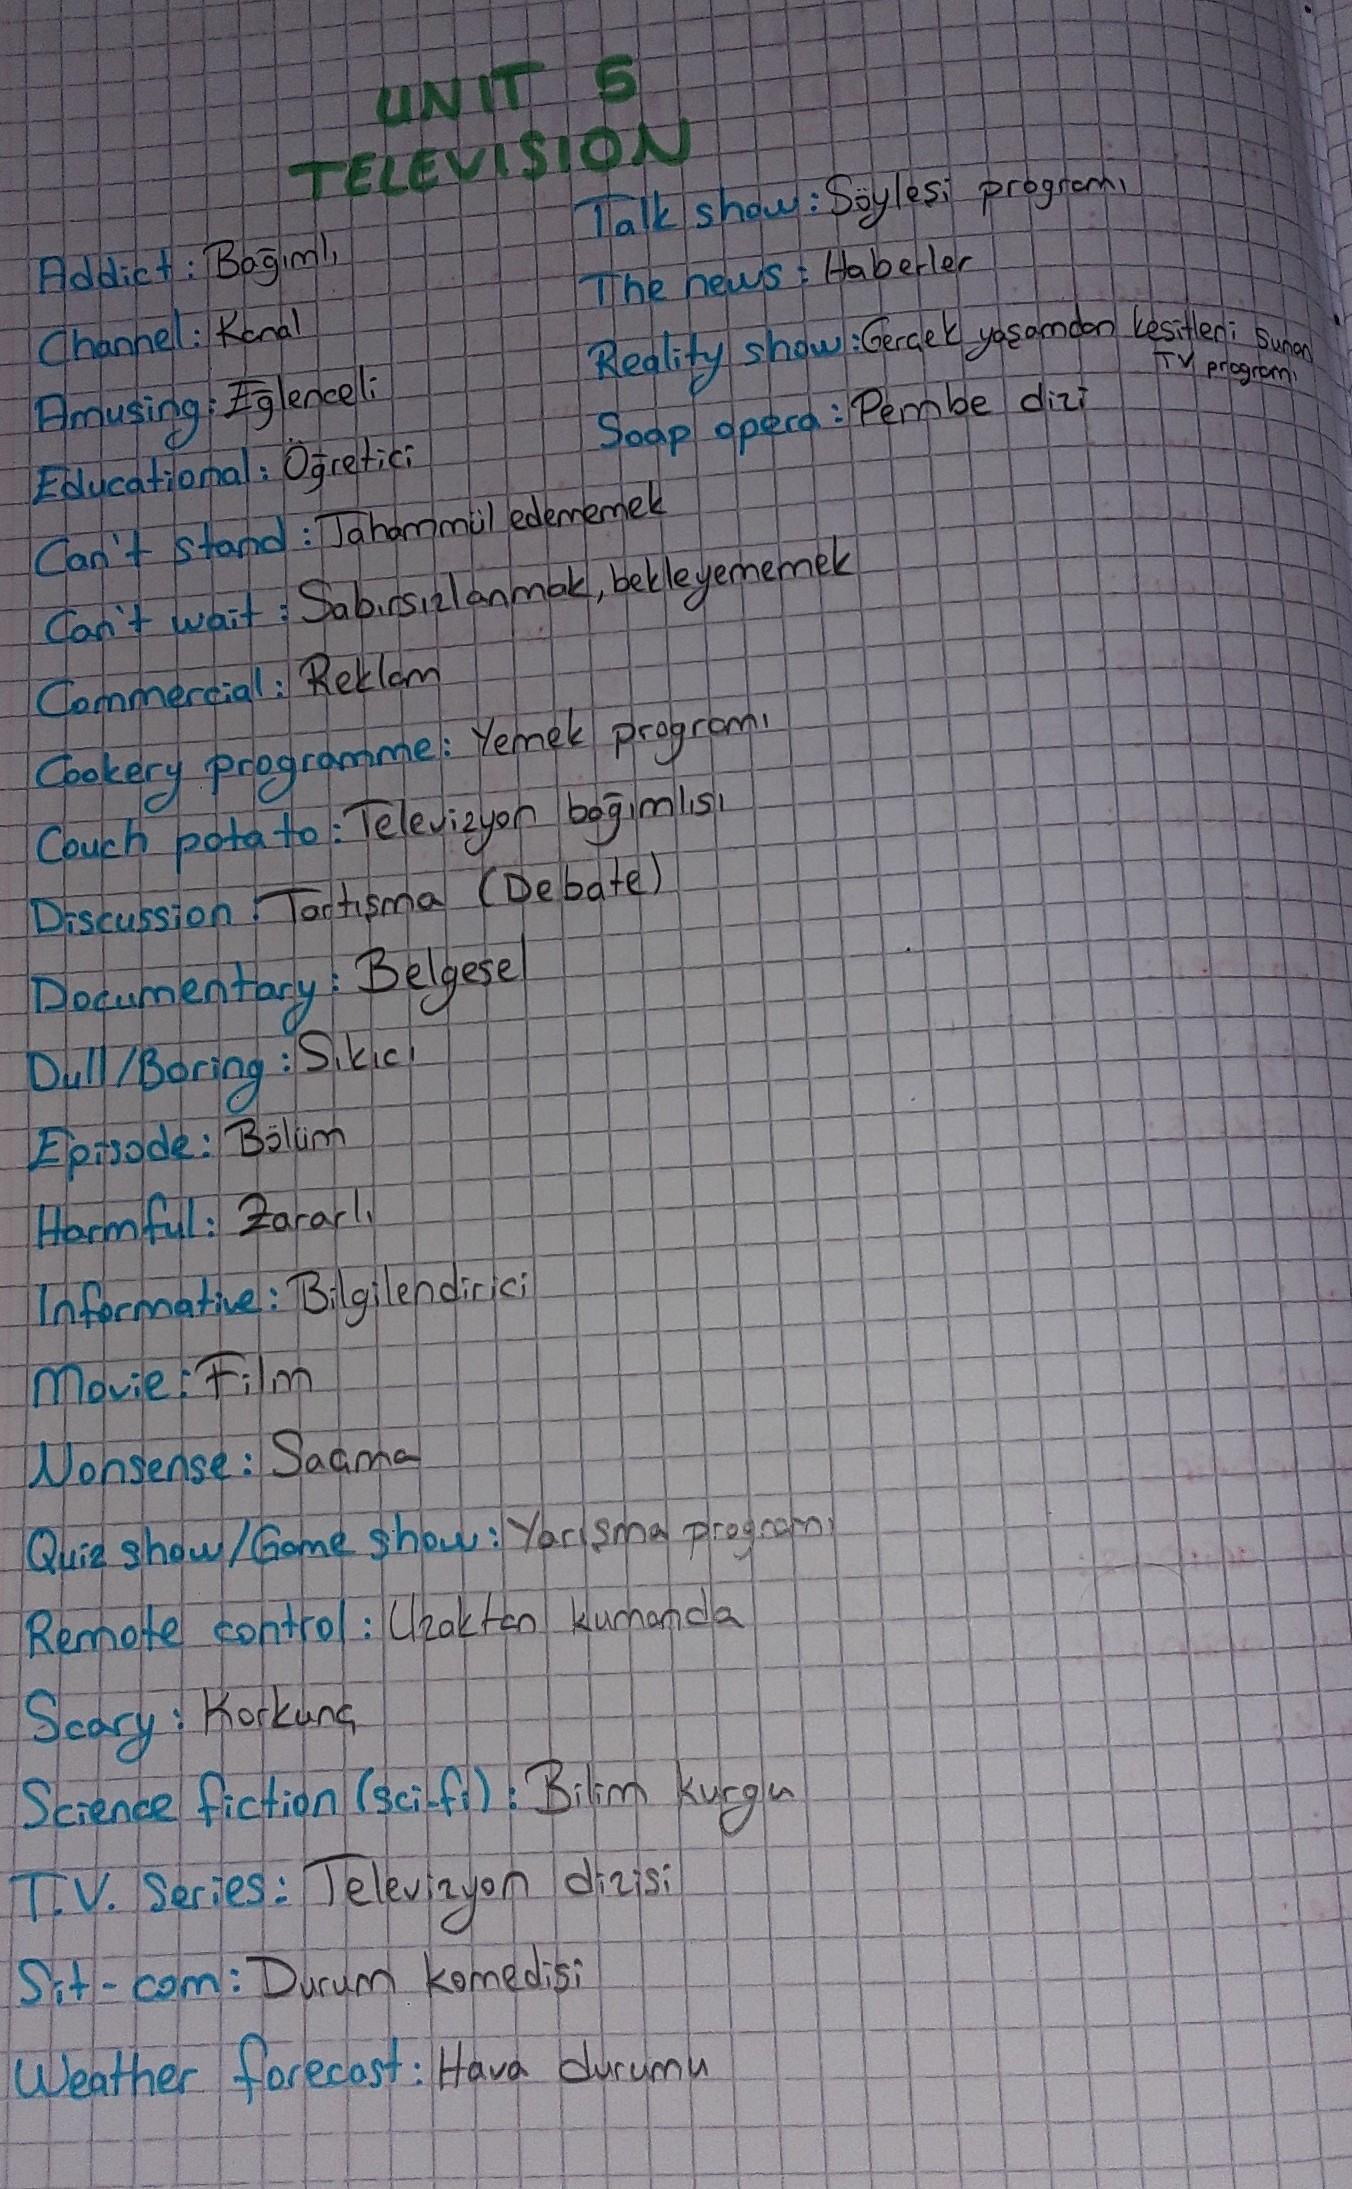 UNIT 5
TELEVISION
Addict: Bağımlı
Channel: Kanal
Amusing: Eğlenceli
Educational: Öğretici
Can't stand: Tahammül edememek
Can't wait: Sabırsızlanmak, bekleyememek
Commercial: Reklam
Cookery programme: Yemek programı
Couch potato: Televizyon bağımlısı
Discussion: Tartışma (Debate)
Documentary: Belgesel
Dull/Boring: Sıkıcı
Episode: Bölüm
Harmful: Zararlı
Informative: Bilgilendirici
Movie: Film
Nonsense: Saçma
Quiz show/Game show: Yarışma programı
Remote control: Uzaktan kumanda
Scary: Korkunç
Science fiction (sci-fi): Bilim kurgu
T.V. Series: Televizyon dizisi
Sit-com: Durum komedisi
Weather forecast: Hava durumu
Talk show: Söyleşi programı
The news: Haberler
Reality show: Gerçek yaşamdan kesitleri sunan
TV programı
Soap opera: Pembe dizi